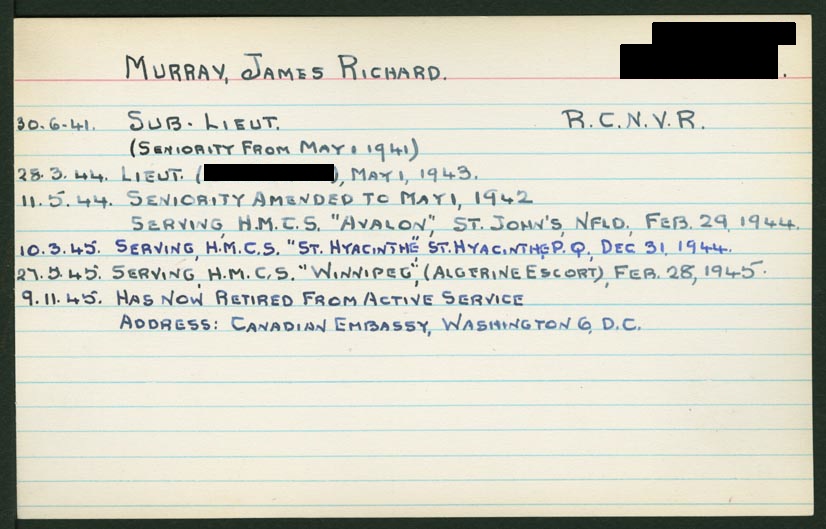 MURRAY, JAMES RICHARD.
30.6.41. SUB-LIEUT. R.C.N.V.R.
(SENIORITY FROM MAY 1 1941)
28.3.44. LIEUT. ( ), MAY 1, 1943.
11.5.44. SENIORITY AMENDED TO MAY 1, 1942
SERVING, H.M.C.S. "AVALON", ST. JOHN'S, NFLD, FEB. 29, 1944.
10.3.45. SERVING, H.M.C.S. "ST. HYACINTHE", ST. HYACINTHE, P.Q, DEC 31, 1944.
27.5.45. SERVING, H.M.C.S. "WINNIPEG", (ALGERINE ESCORT), FEB. 28, 1945.
9.11.45. HAS NOW RETIRED FROM ACTIVE SERVICE
ADDRESS: CANADIAN EMBASSY, WASHINGTON 6, D.C.